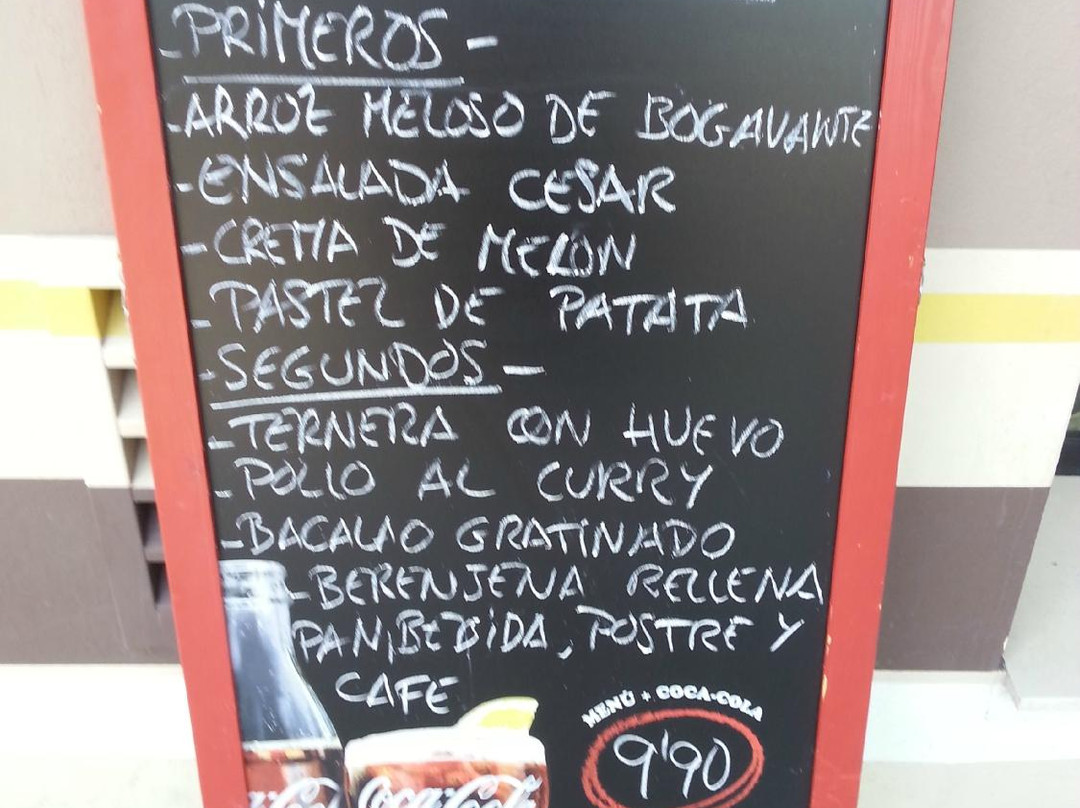 -PRIMEROS-
-ARROZ MELOSO DE BOGAVANTE
-ENSALADA CESAR
-CREMA DE MELÓN
-PASTEL DE PATATA
-SEGUNDOS-
-TERNERA CON HUEVO
-POLLO AL CURRY
-BACALAO GRATINADO
-BERENJENA RELLENA
PAN, BEBIDA, POSTRE Y
CAFE
MENÚ + COCA-COLA
9'90
Coca-Cola